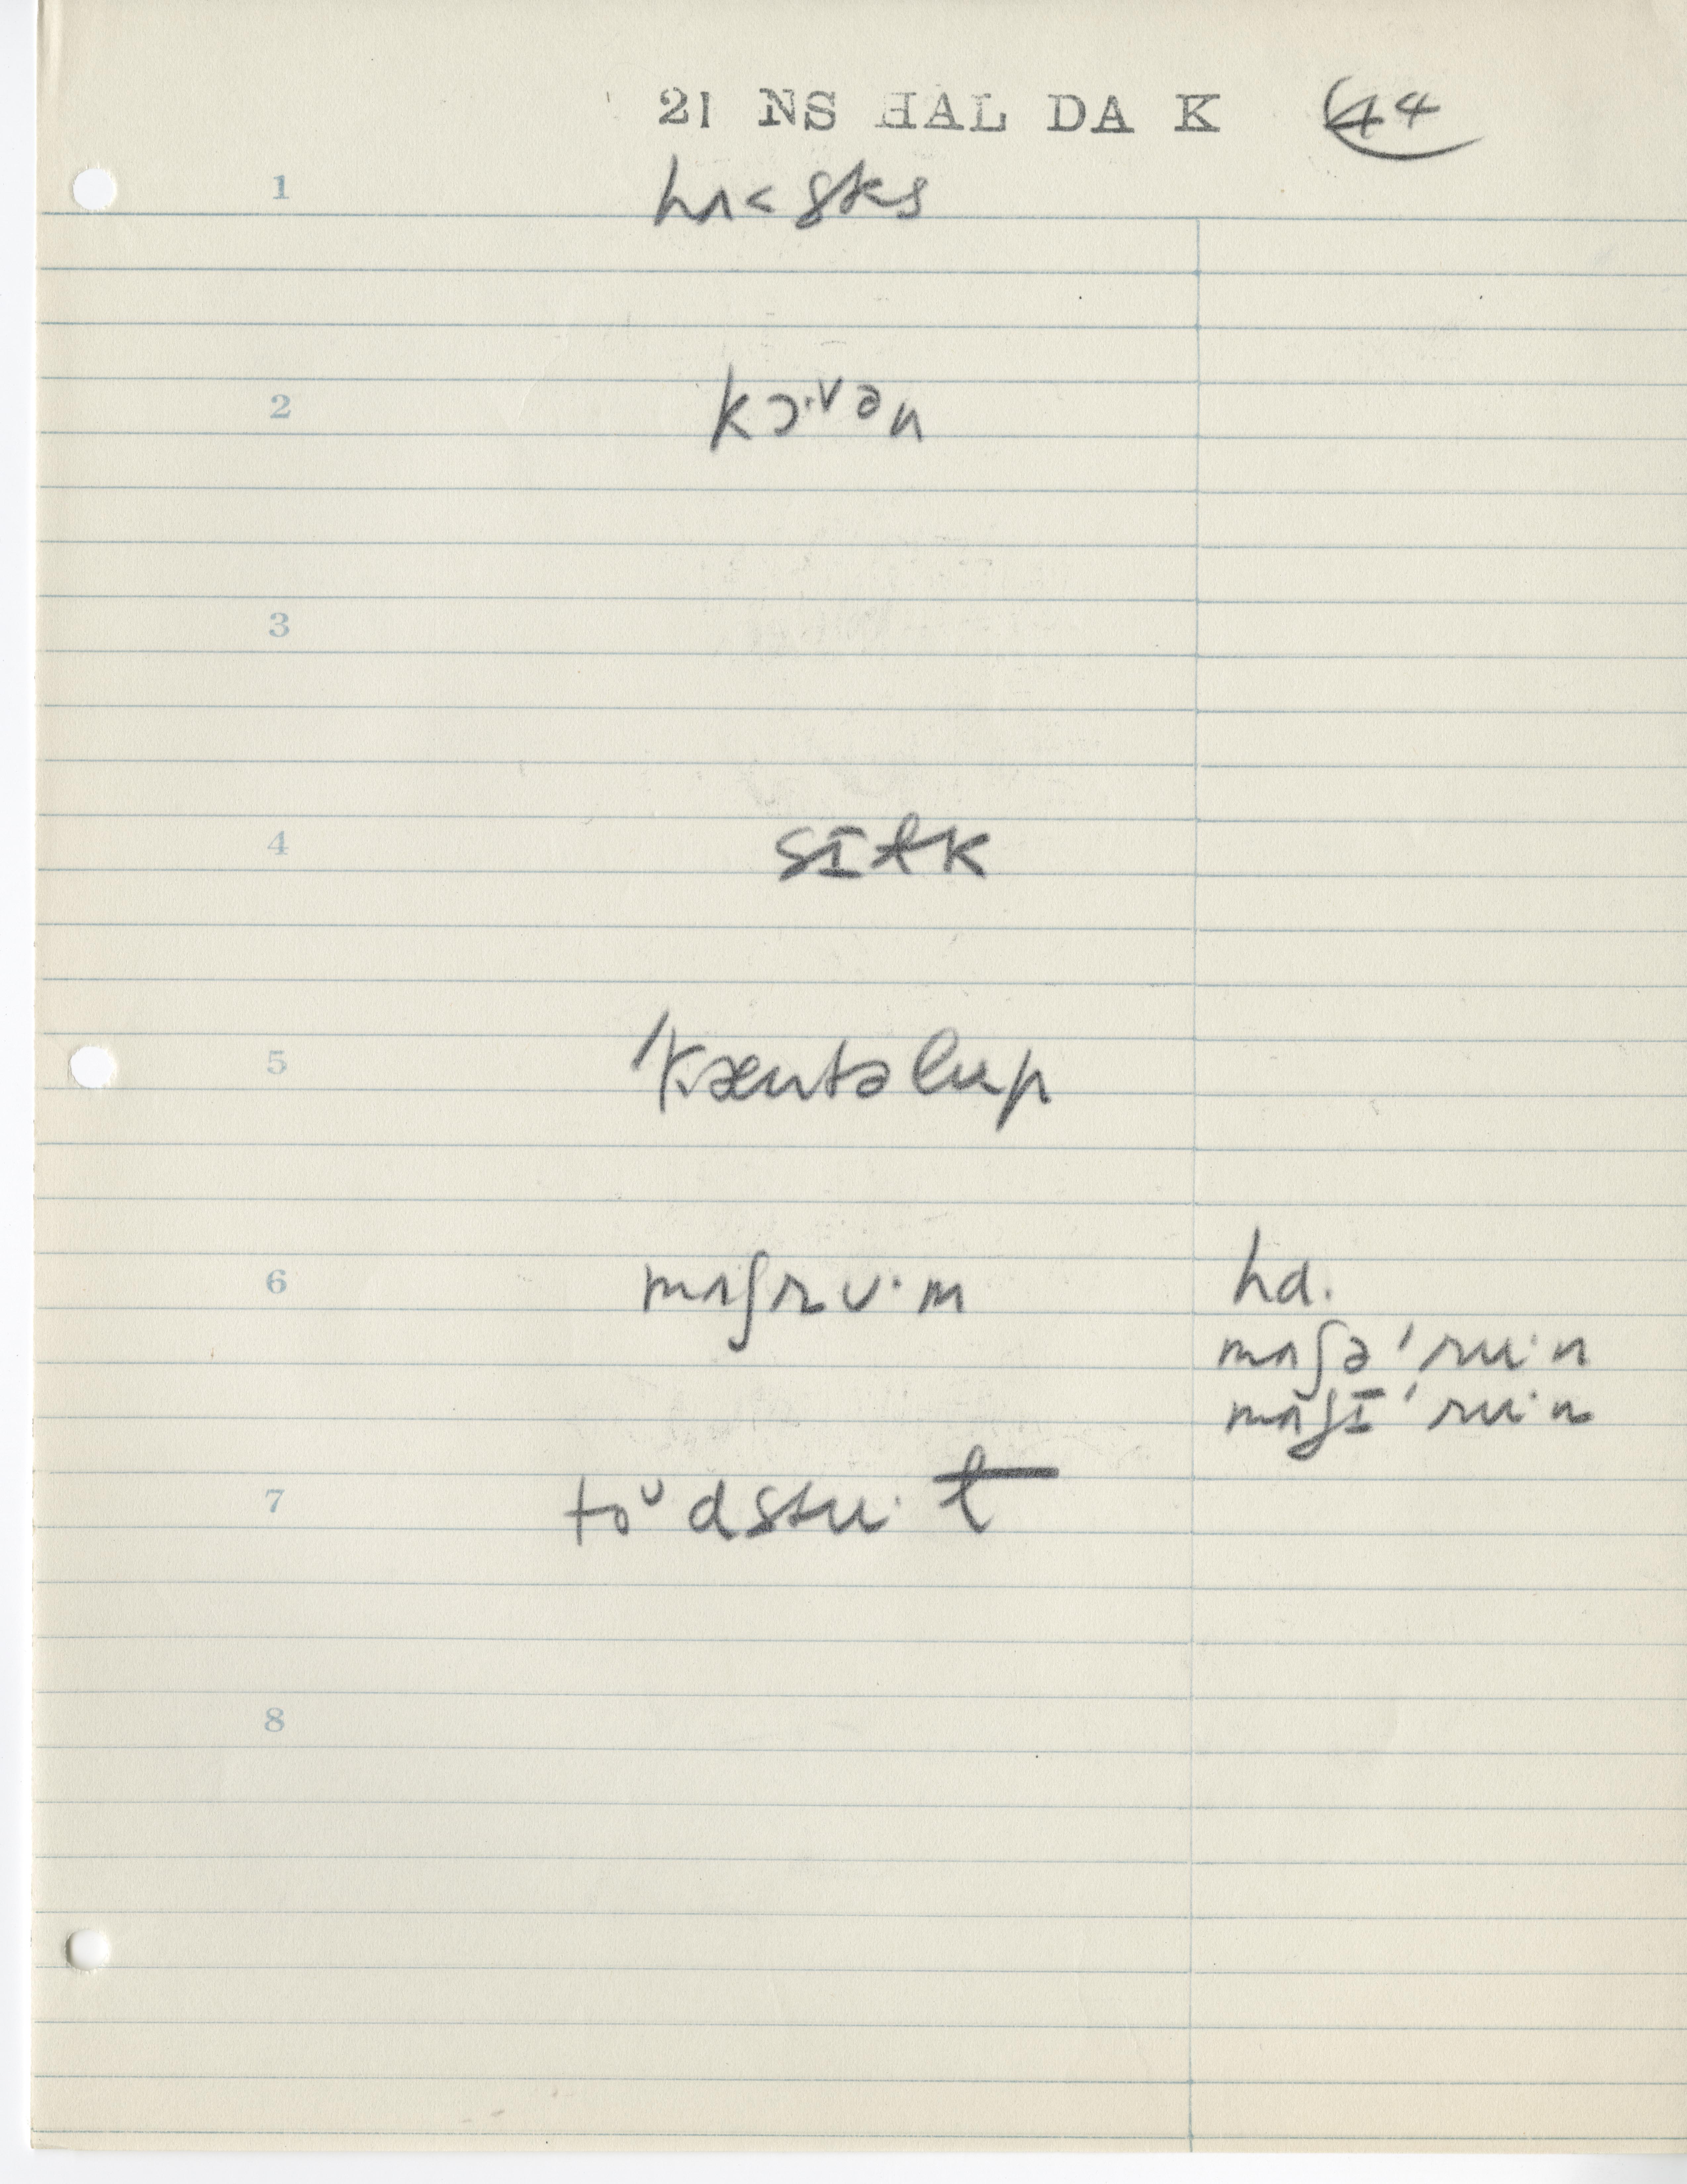 21 NS HAL DA K 44
1 hʌ˂sks
2 kɔ·vən
3
4 sɪɫk
5 ˈkæntəlup
6 mʌʃrʊ·m hd.
mʌʃəˈru·n
mʌʃɪˈru·n
7 to^ʊdstu·l
8